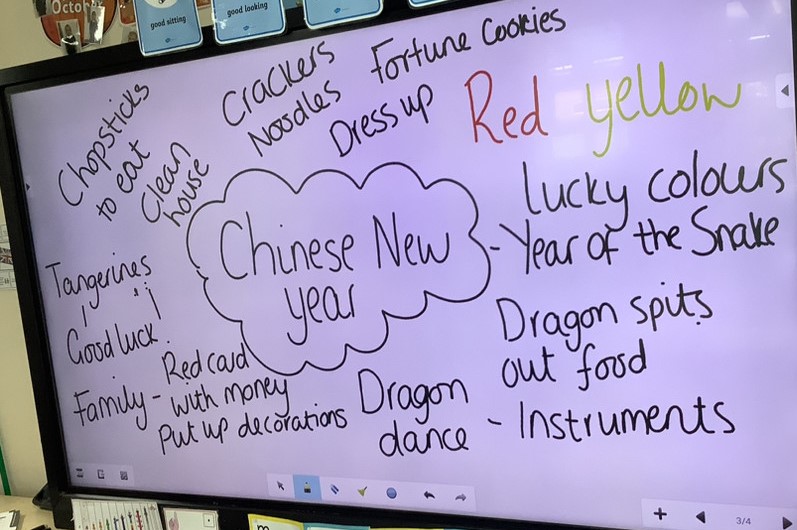 Octob
good sitting
good looking
Chopsticks
to eat
Clean
house
Crackers
Noodles
Fortune Cookies
Dress up
Red yellow
lucky colours
Chinese New
year
- Year of the Snake
Tangerines
Good luck.
Dragon spits
out food
Family - Red card
with money
Put up decorations
Dragon
dance - Instruments
3/4